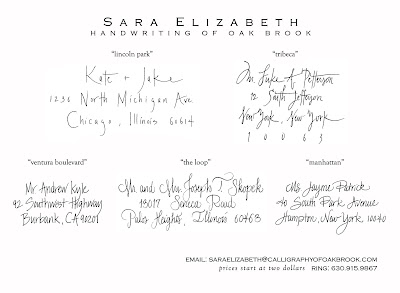 SARA ELIZABETH
HANDWRITING OF OAK BROOK
"lincoln park"
Kate + Jake
1236 North Michigan Ave.
Chicago, Illinois 60614
"tribeca"
Mr. Luke A. Petterson
12 South Jefferson
New York, New York
10063
"ventura boulevard"
Mr. Andrew Kyle
92 Southwest Highway
Burbank, CA 90201
"the loop"
Mr. and Mrs. Joseph T. Skopek
13017 Seneca Road
Palos Heights, Illinois 60463
"manhattan"
Ms. Jayme Patrick
20 South Park Avenue
Hampton, New York 10040
EMAIL: SARAELIZABETH@CALLIGRAPHYOFOAKBROOK.COM
prices start at two dollars RING: 630.915.9867